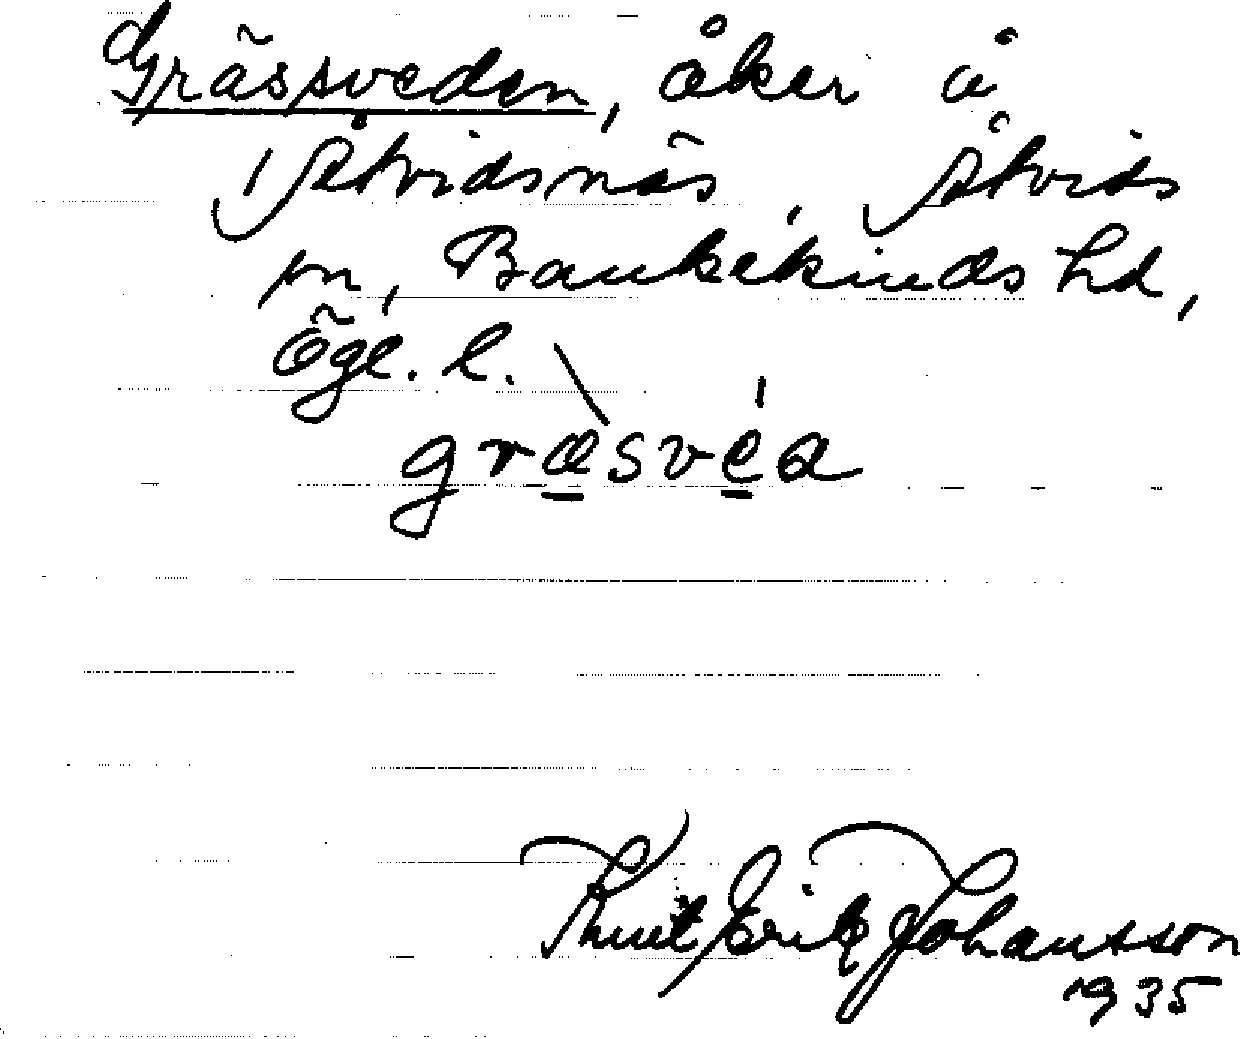 Grässveden, åker å
Åtvidsnäs, Åtvids
sn, Bankekinds hd,
Ögl. l.
græsvéa
Knut Erik Johansson
1935